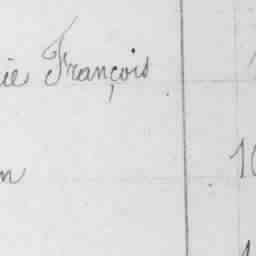 ie François
n 10